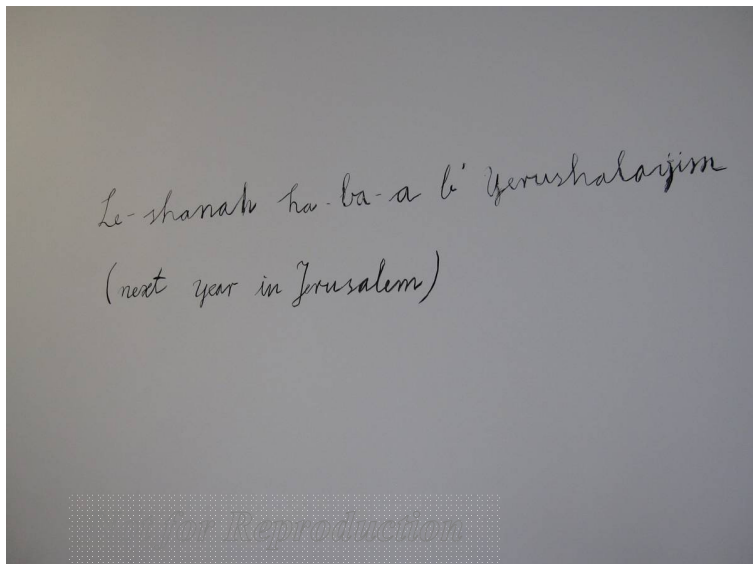 Le-shanah ha-ba-a b' Yerushalayim
(next year in Jerusalem)
for Reproduction